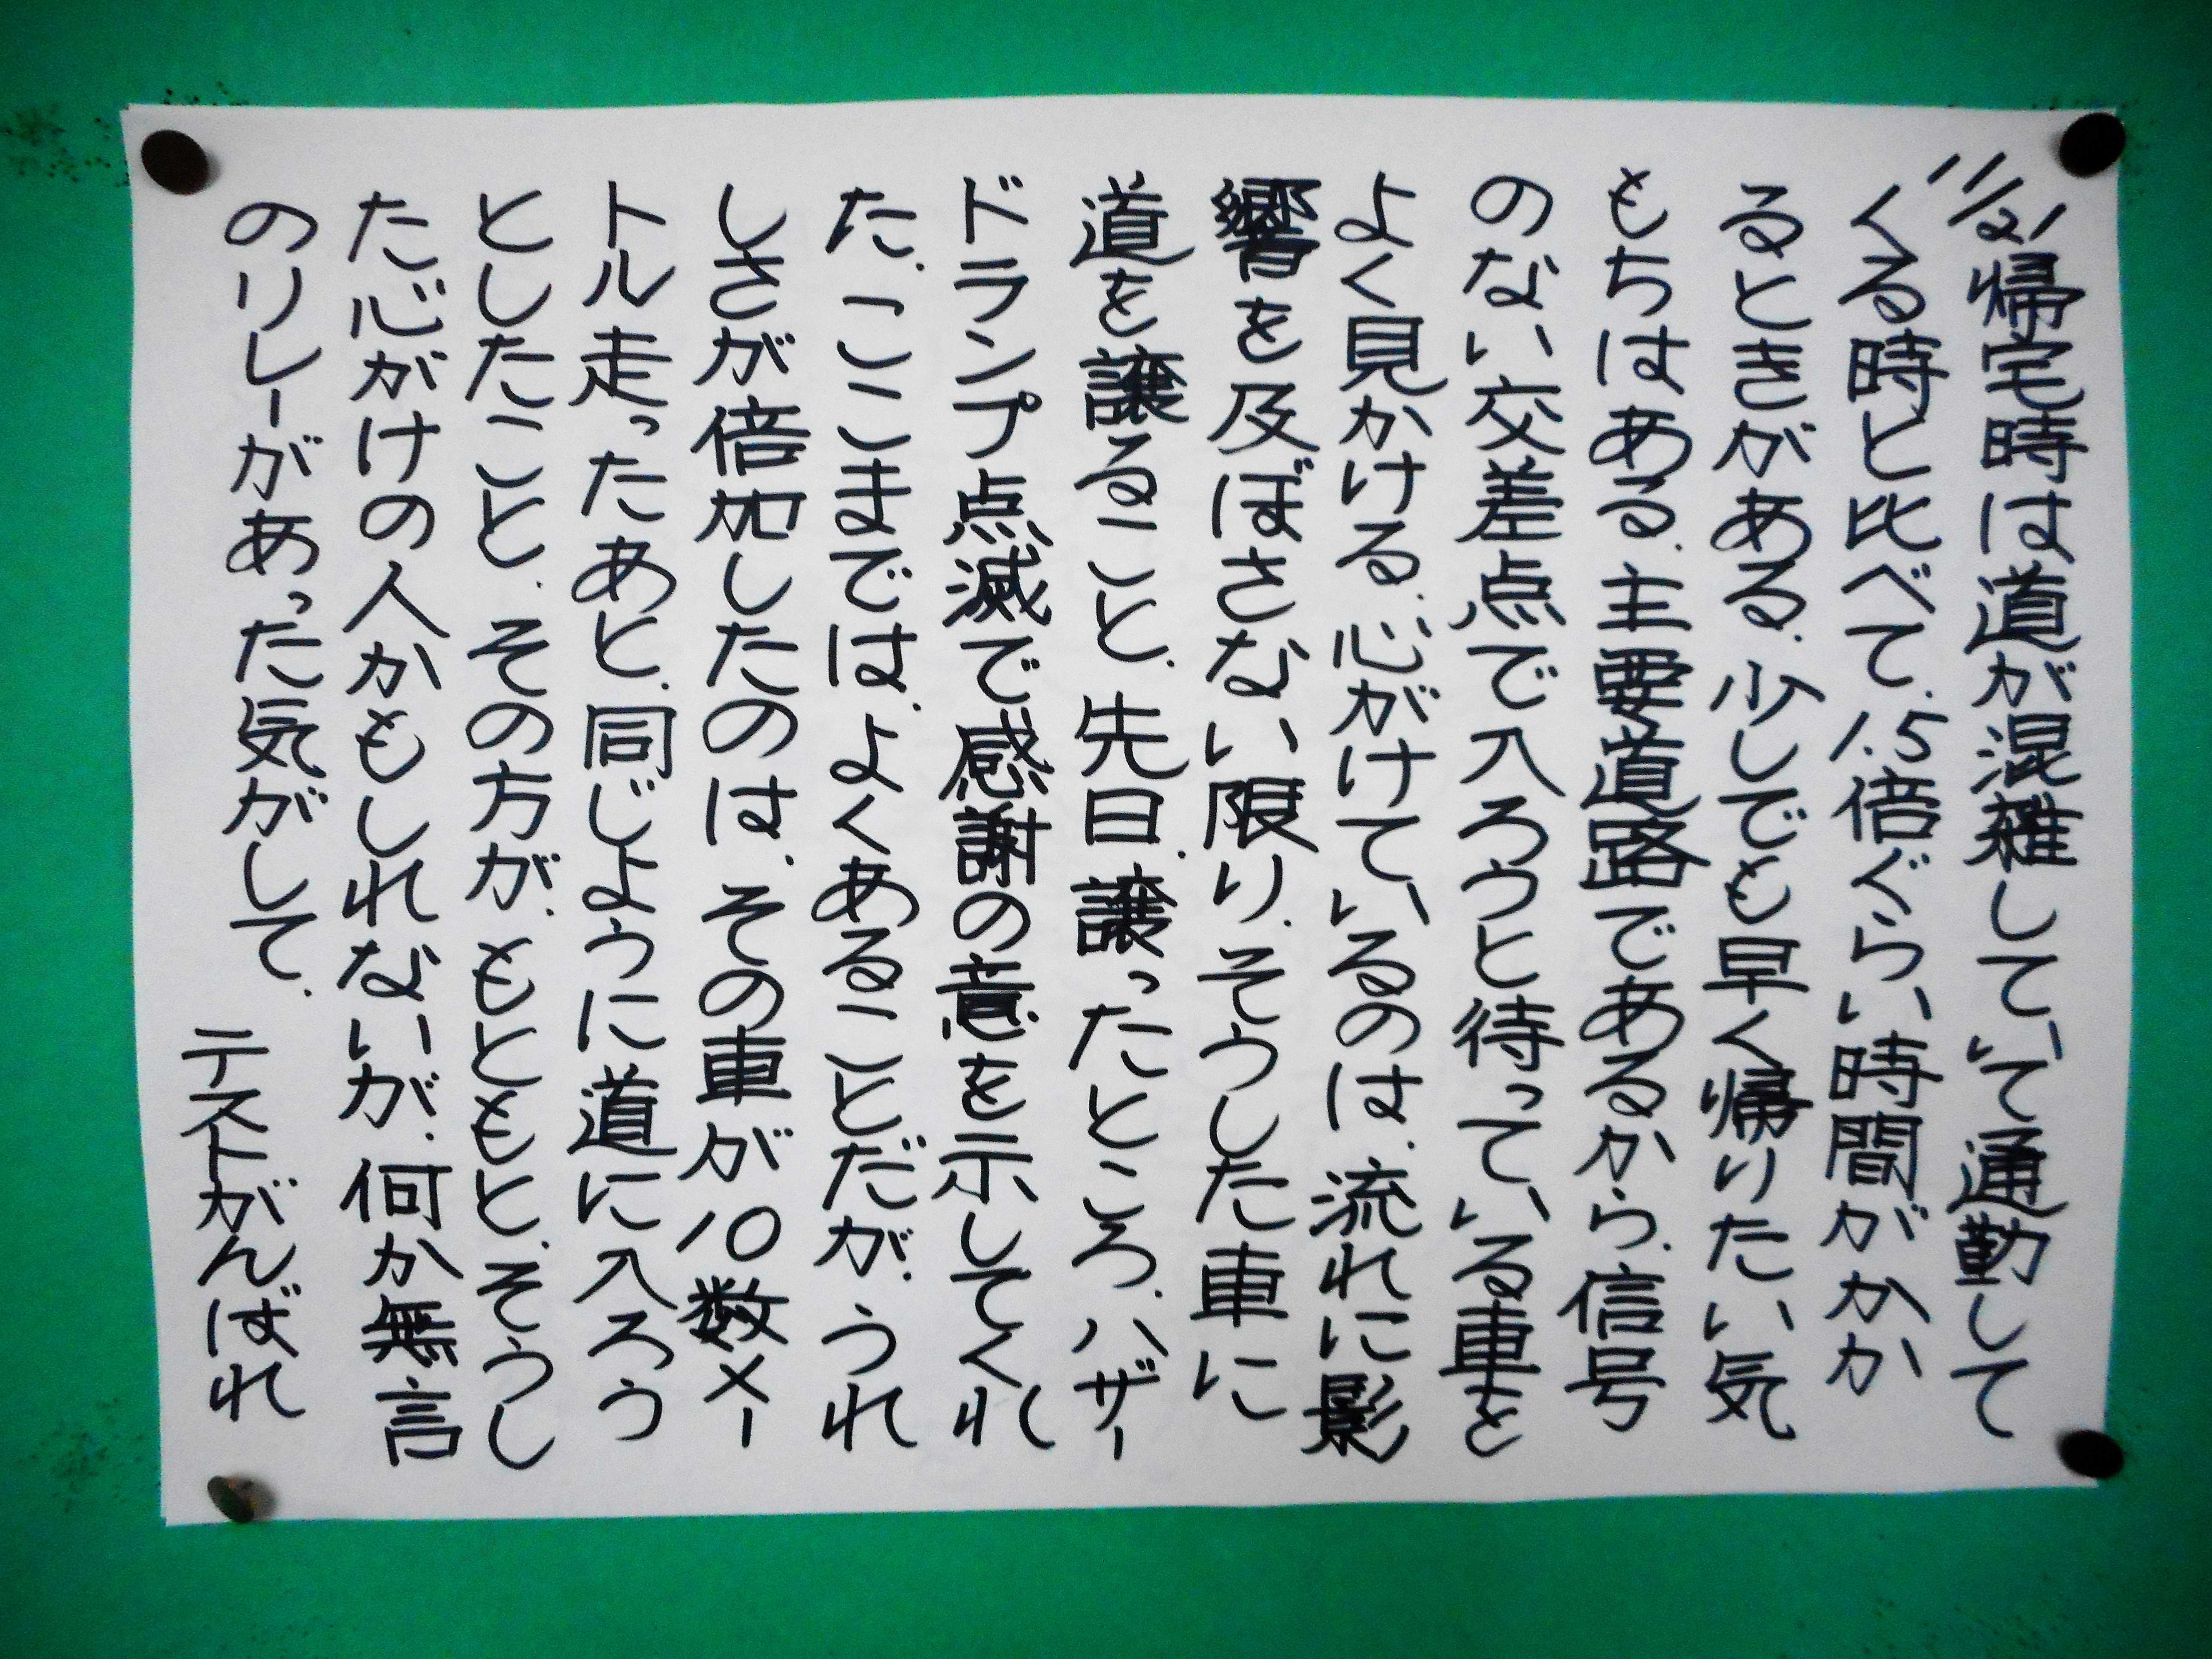 11/21 帰宅時は道が混雑していて通勤して
くる時と比べて、1.5倍ぐらい時間がかか
るときがある。少しでも早く帰りたい気
もちはある。主要道路であるから、信号
のない交差点で入ろうと待っている車を
よく見かける。心がけているのは、流れに影
響を及ぼさない限り、そうした車に
道を譲ること。先日、譲ったところ、ハザー
ドランプ点滅で感謝の意を示してくれ
た。ここまでは、よくあることだが、うれ
しさが倍加したのは、その車が10数メー
トル走ったあと、同じように道に入ろう
としたこと。その方が、もともと、そうし
た心がけの人かもしれないが、何か無言
のリレーがあった気がして。
テストがんばれ